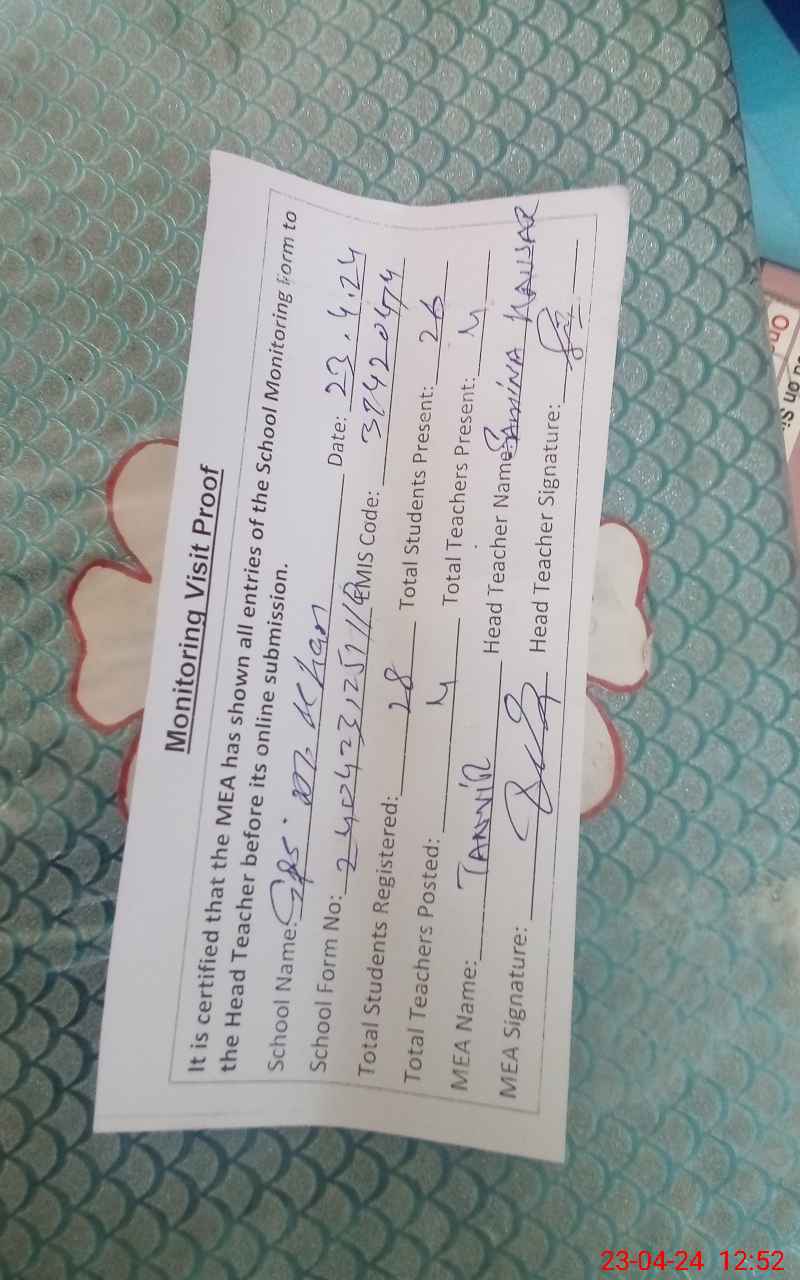 Monitoring Visit Proof
It is certified that the MEA has shown all entries of the School Monitoring Form to
the Head Teacher before its online submission.
School Name: GPS Khan Date: 23.4.24
School Form No: EMIS Code:
Total Students Registered: 28 Total Students Present: 26
Total Teachers Posted: 4 Total Teachers Present: 4
MEA Name: TANVIR Head Teacher Name: SAMINA KAUSAR
MEA Signature: Head Teacher Signature:
23-04-24 12:52